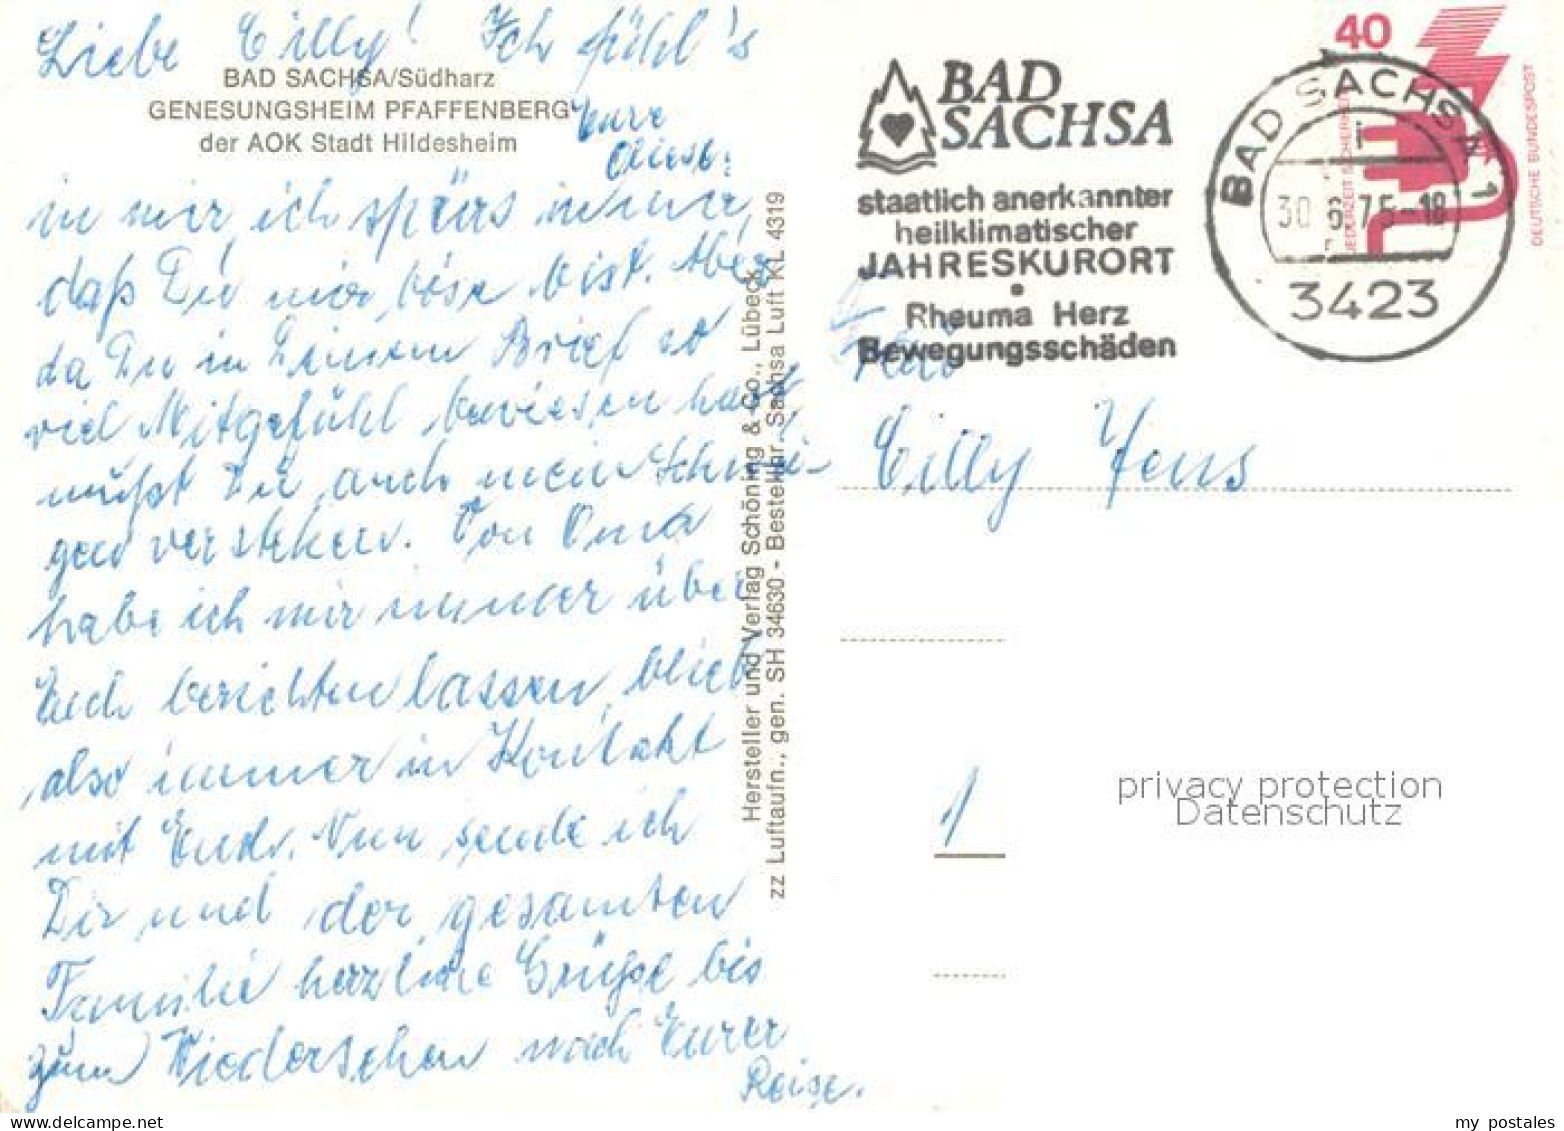 Liebe Cilly! Ich fühl's
BAD SACHSA/Südharz
GENESUNGSHEIM PFAFFENBERG
der AOK Stadt Hildesheim
Eure
in mir, ich spürs immer,
daß Du mir böse bist. Aber
da Du in Deinem Brief so
viel Mitgefühl bewiesen hast,
mußt Du auch mein Schwei-
gen verstehen. Von Oma
habe ich mir immer über
Euch berichten lassen, blieb
also immer in Kontakt
mit Euch. Nun sende ich
Dir und der gesamten
Familie herzliche Grüße bis
zum Wiedersehen nach Eurer
Reise.
Hersteller und Verlag Schöning & Co., Lübeck
zz Luftaufn., gen. SH 34630 - Bestellnr. Sachsa Luft KL 4319
BAD
SACHSA
staatlich anerkannter
heilklimatischer
JAHRESKURORT
Rheuma Herz
Bewegungsschäden
BAD SACHSA 1
30.6.75-18
3423
40
JEDERZEIT SICHERHEIT
DEUTSCHE BUNDESPOST
Cilly Jens
1
privacy protection
Datenschutz
my postales